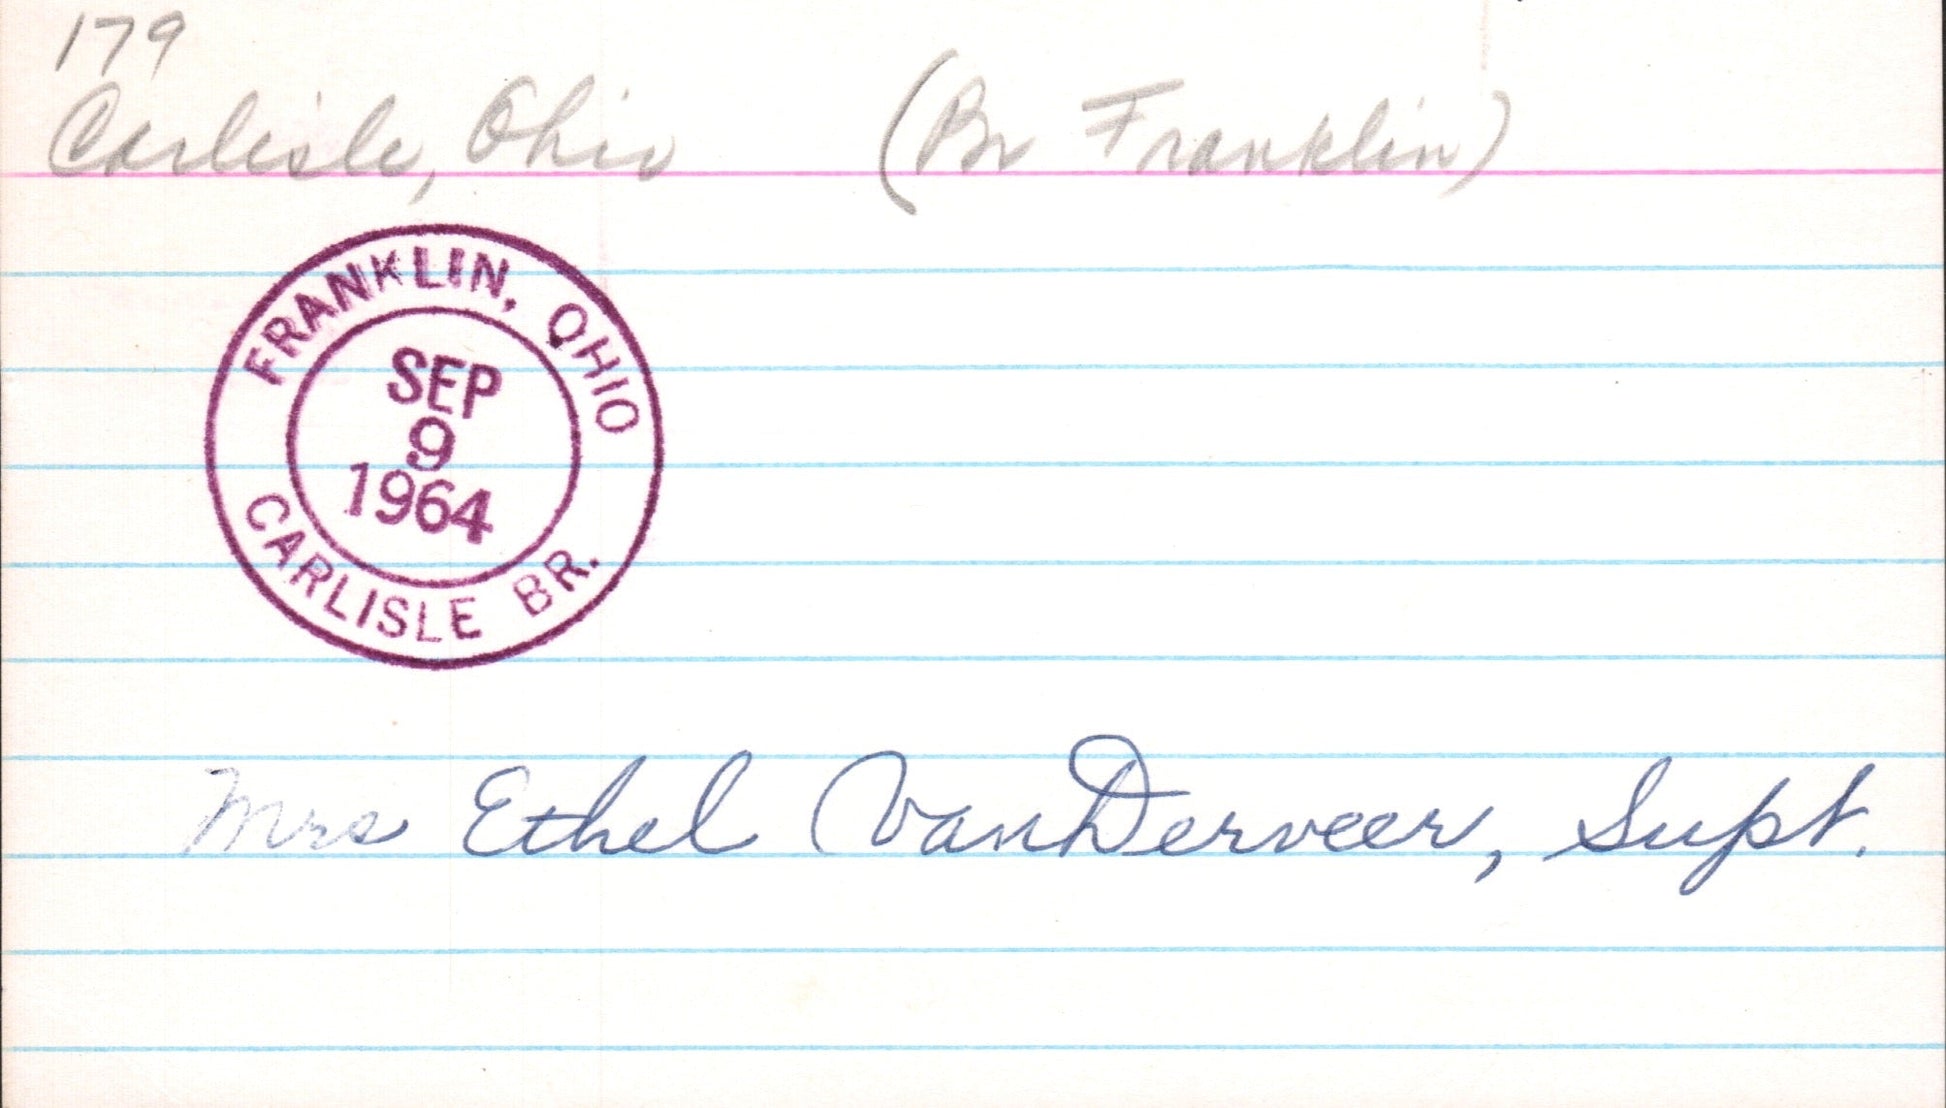 179
Carlisle, Ohio (Br Franklin)
FRANKLIN, OHIO
SEP
9
1964
CARLISLE BR.
Mrs Ethel VanDerveer, Supt.